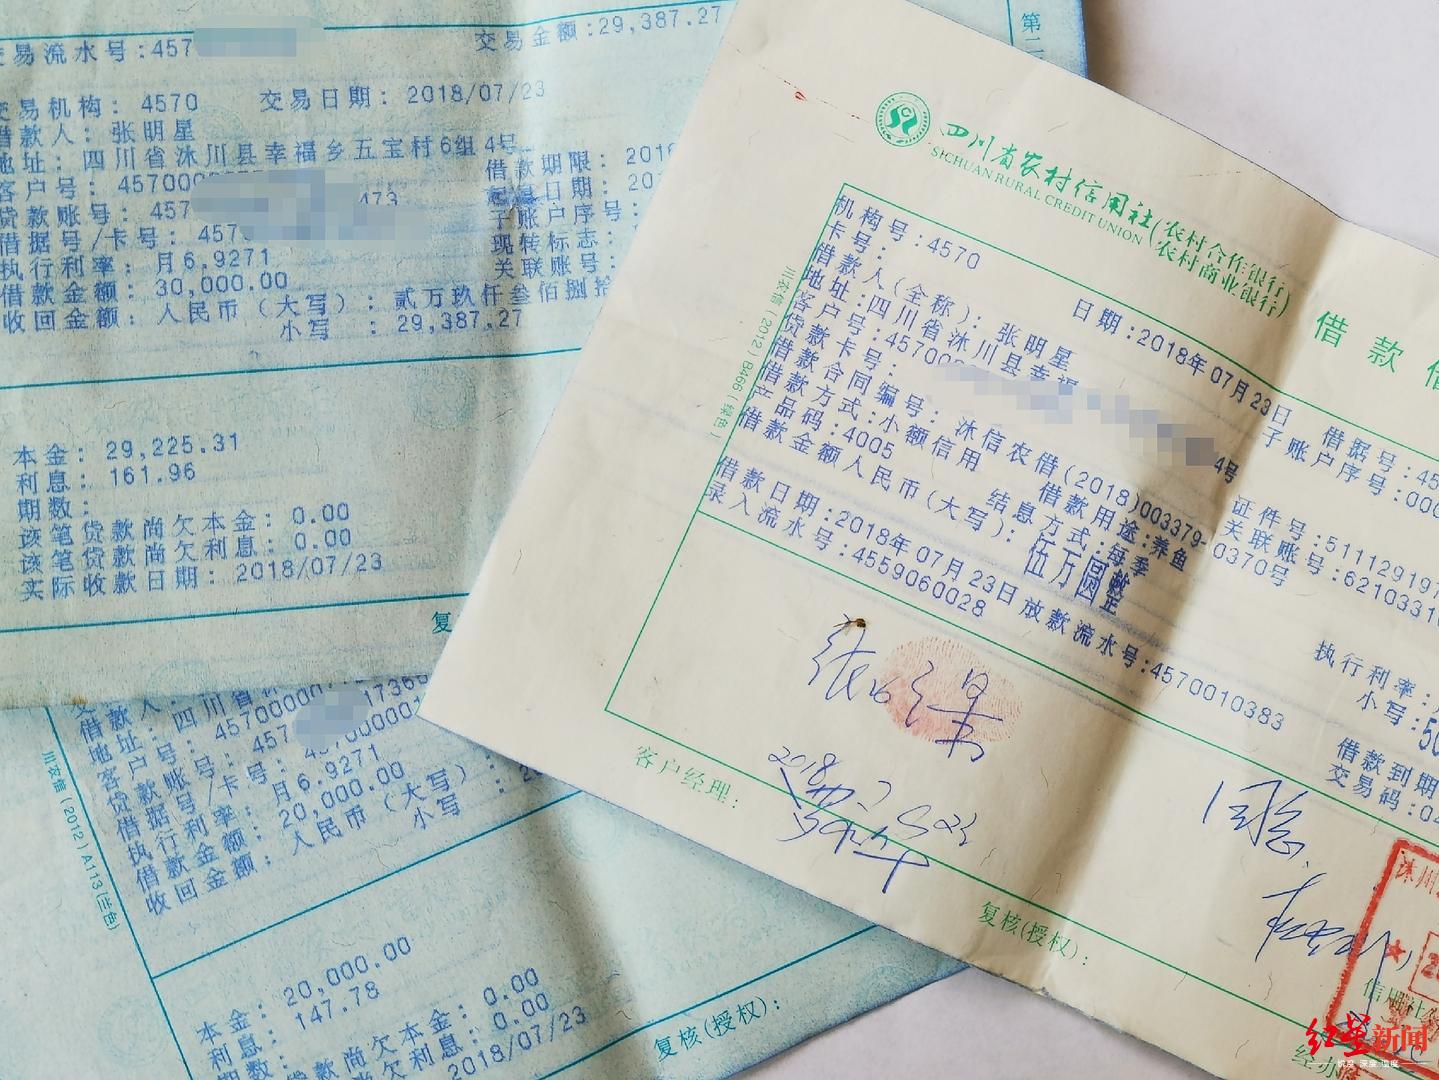 交易流水号:457
交易金额:29,387.27
第二
交易机构: 4570 交易日期: 2018/07/23
借款人: 张明星
地址: 四川省沐川县幸福乡五宝村6组4号
借款期限: 2016
客户号: 4570000
起息日期: 20
贷款账号: 457 473
子账户序号:
借据号/卡号: 457
现转标志:
执行利率: 月6.9271
关联账号:
借款金额: 30,000.00
收回金额: 人民币(大写): 贰万玖仟叁佰捌拾
小写 : 29,387.27
本金: 29,225.31
利息: 161.96
期数:
该笔贷款尚欠本金: 0.00
该笔贷款尚欠利息: 0.00
实际收款日期: 2018/07/23
复
四川省农村信用社(农村合作银行)(农村商业银行)
SICHUAN RURAL CREDIT UNION
借款借
机构号:4570
日期:2018年07月23日
借据号:45
卡号:
子账户序号:000
借款人(全称): 张明星
地址:四川省沐川县幸福
4号
证件号:51112919
客户号:45700
关联账号:6210331
贷款卡号:
借款合同编号: 沐信农借(2018)003379-00370号
借款方式:小额信用
借款用途:养鱼
执行利率:
产品码:4005
结息方式:每季
小写:50
借款金额人民币(大写): 伍万圆整
借款日期:2018年07月23日放款流水号:4570010383
借款到期
录入流水号:4559060028
交易码:04
川农信(2012)B466(绿色)
张明星
2018 7 23
同意
客户经理:
复核(授权):
信用社
经办
沐川
地址: 四川省
客户号: 4570000 1736
贷款账号: 457
借据号/卡号: 457000001
执行利率: 月6.9271
借款金额: 20,000.00
收回金额: 人民币(大写):
小写 : 20
川农信(2012)A113(兰色)
本金: 20,000.00
利息: 147.78
期数:
该笔贷款尚欠本金: 0.00
0.00
2018/07/23
复核(授权):
红星新闻
锐度 深度 温度